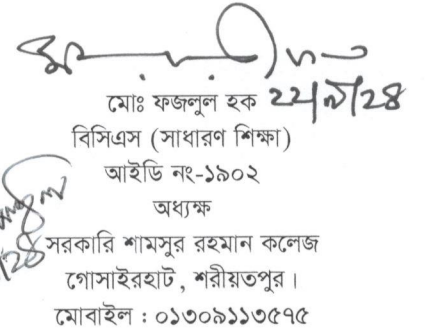 মোঃ ফজলুল হক ২২|৯|২৪
বিসিএস (সাধারণ শিক্ষা)
আইডি নং-১৯০২
অধ্যক্ষ
সরকারি শামসুর রহমান কলেজ
গোসাইরহাট, শরীয়তপুর।
মোবাইল : ০১৩০৯১১৩৫৭৫